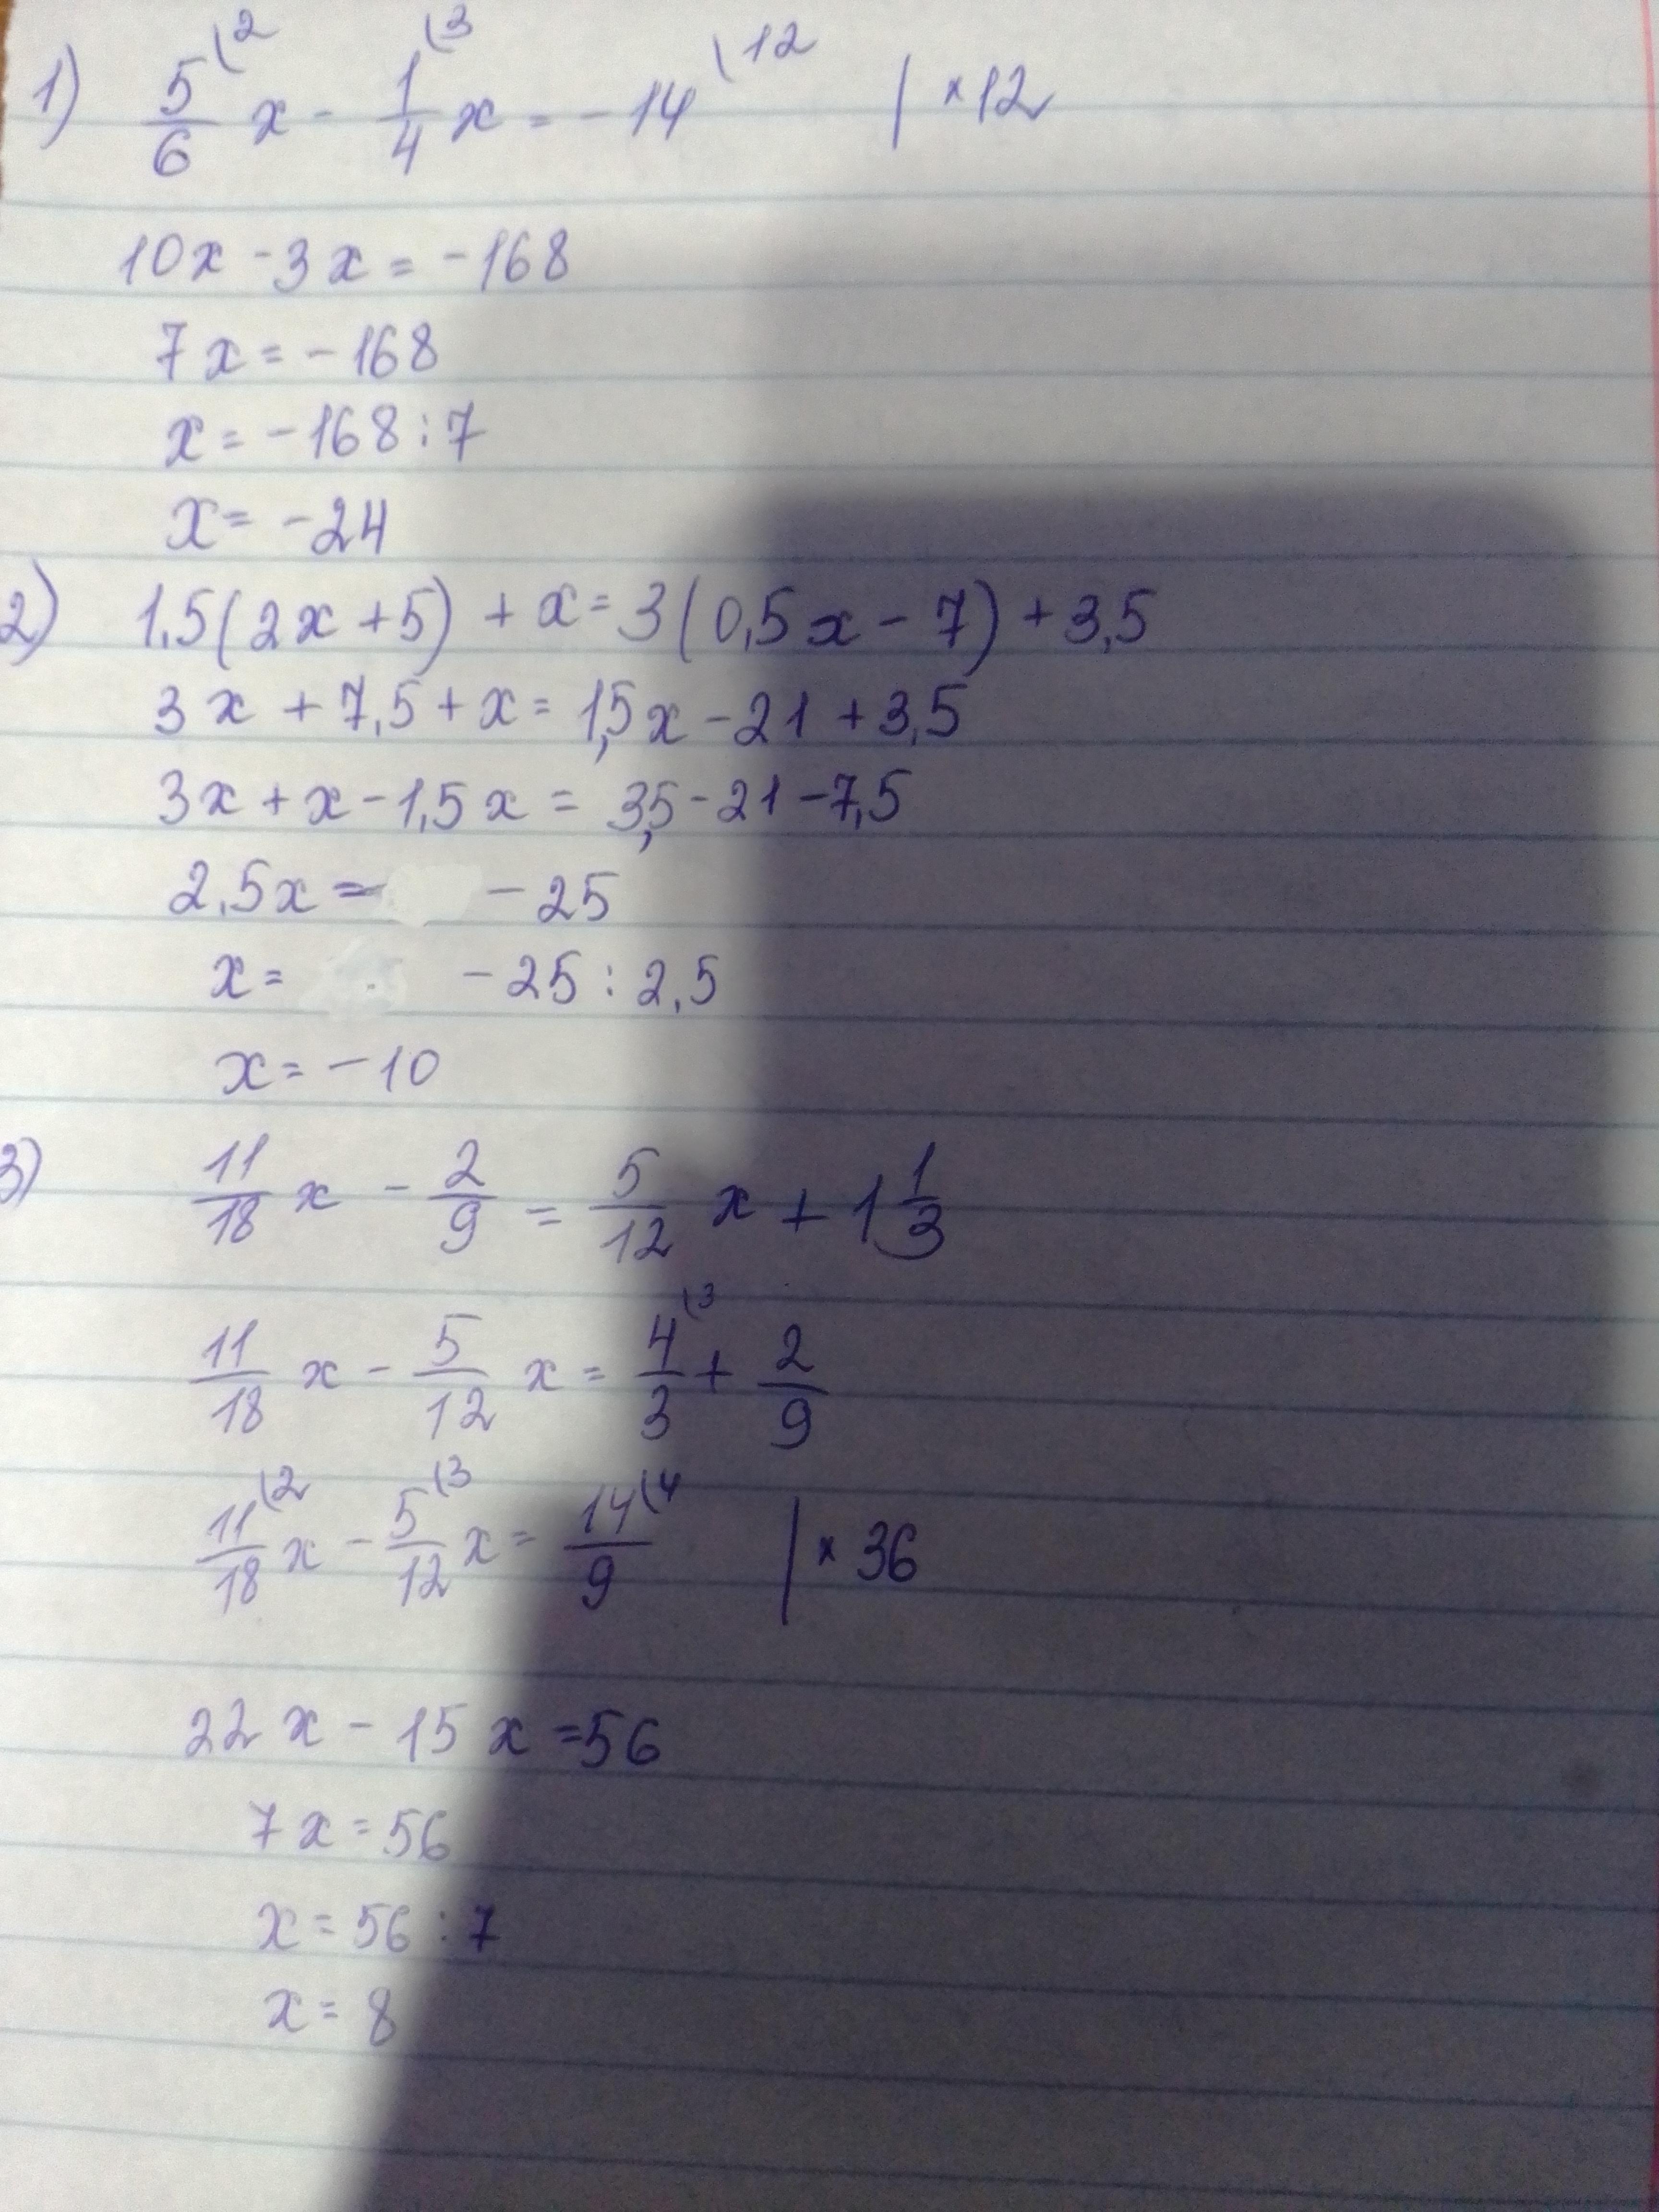 1) 5/6 (2 x - 1/4 (3 x = -14 (12 | ×12
10x - 3x = -168
7x = -168
x = -168 : 7
x = -24
2) 1,5(2x + 5) + x = 3(0,5x - 7) + 3,5
3x + 7,5 + x = 1,5x - 21 + 3,5
3x + x - 1,5x = 3,5 - 21 - 7,5
2,5x = -25
x = -25 : 2,5
x = -10
3) 11/18 x - 2/9 = 5/12 x + 1 1/3
11/18 x - 5/12 x = 4/3 (3 + 2/9
11/18 (2 x - 5/12 (3 x = 14/9 (4 | × 36
22x - 15x = 56
7x = 56
x = 56 : 7
x = 8